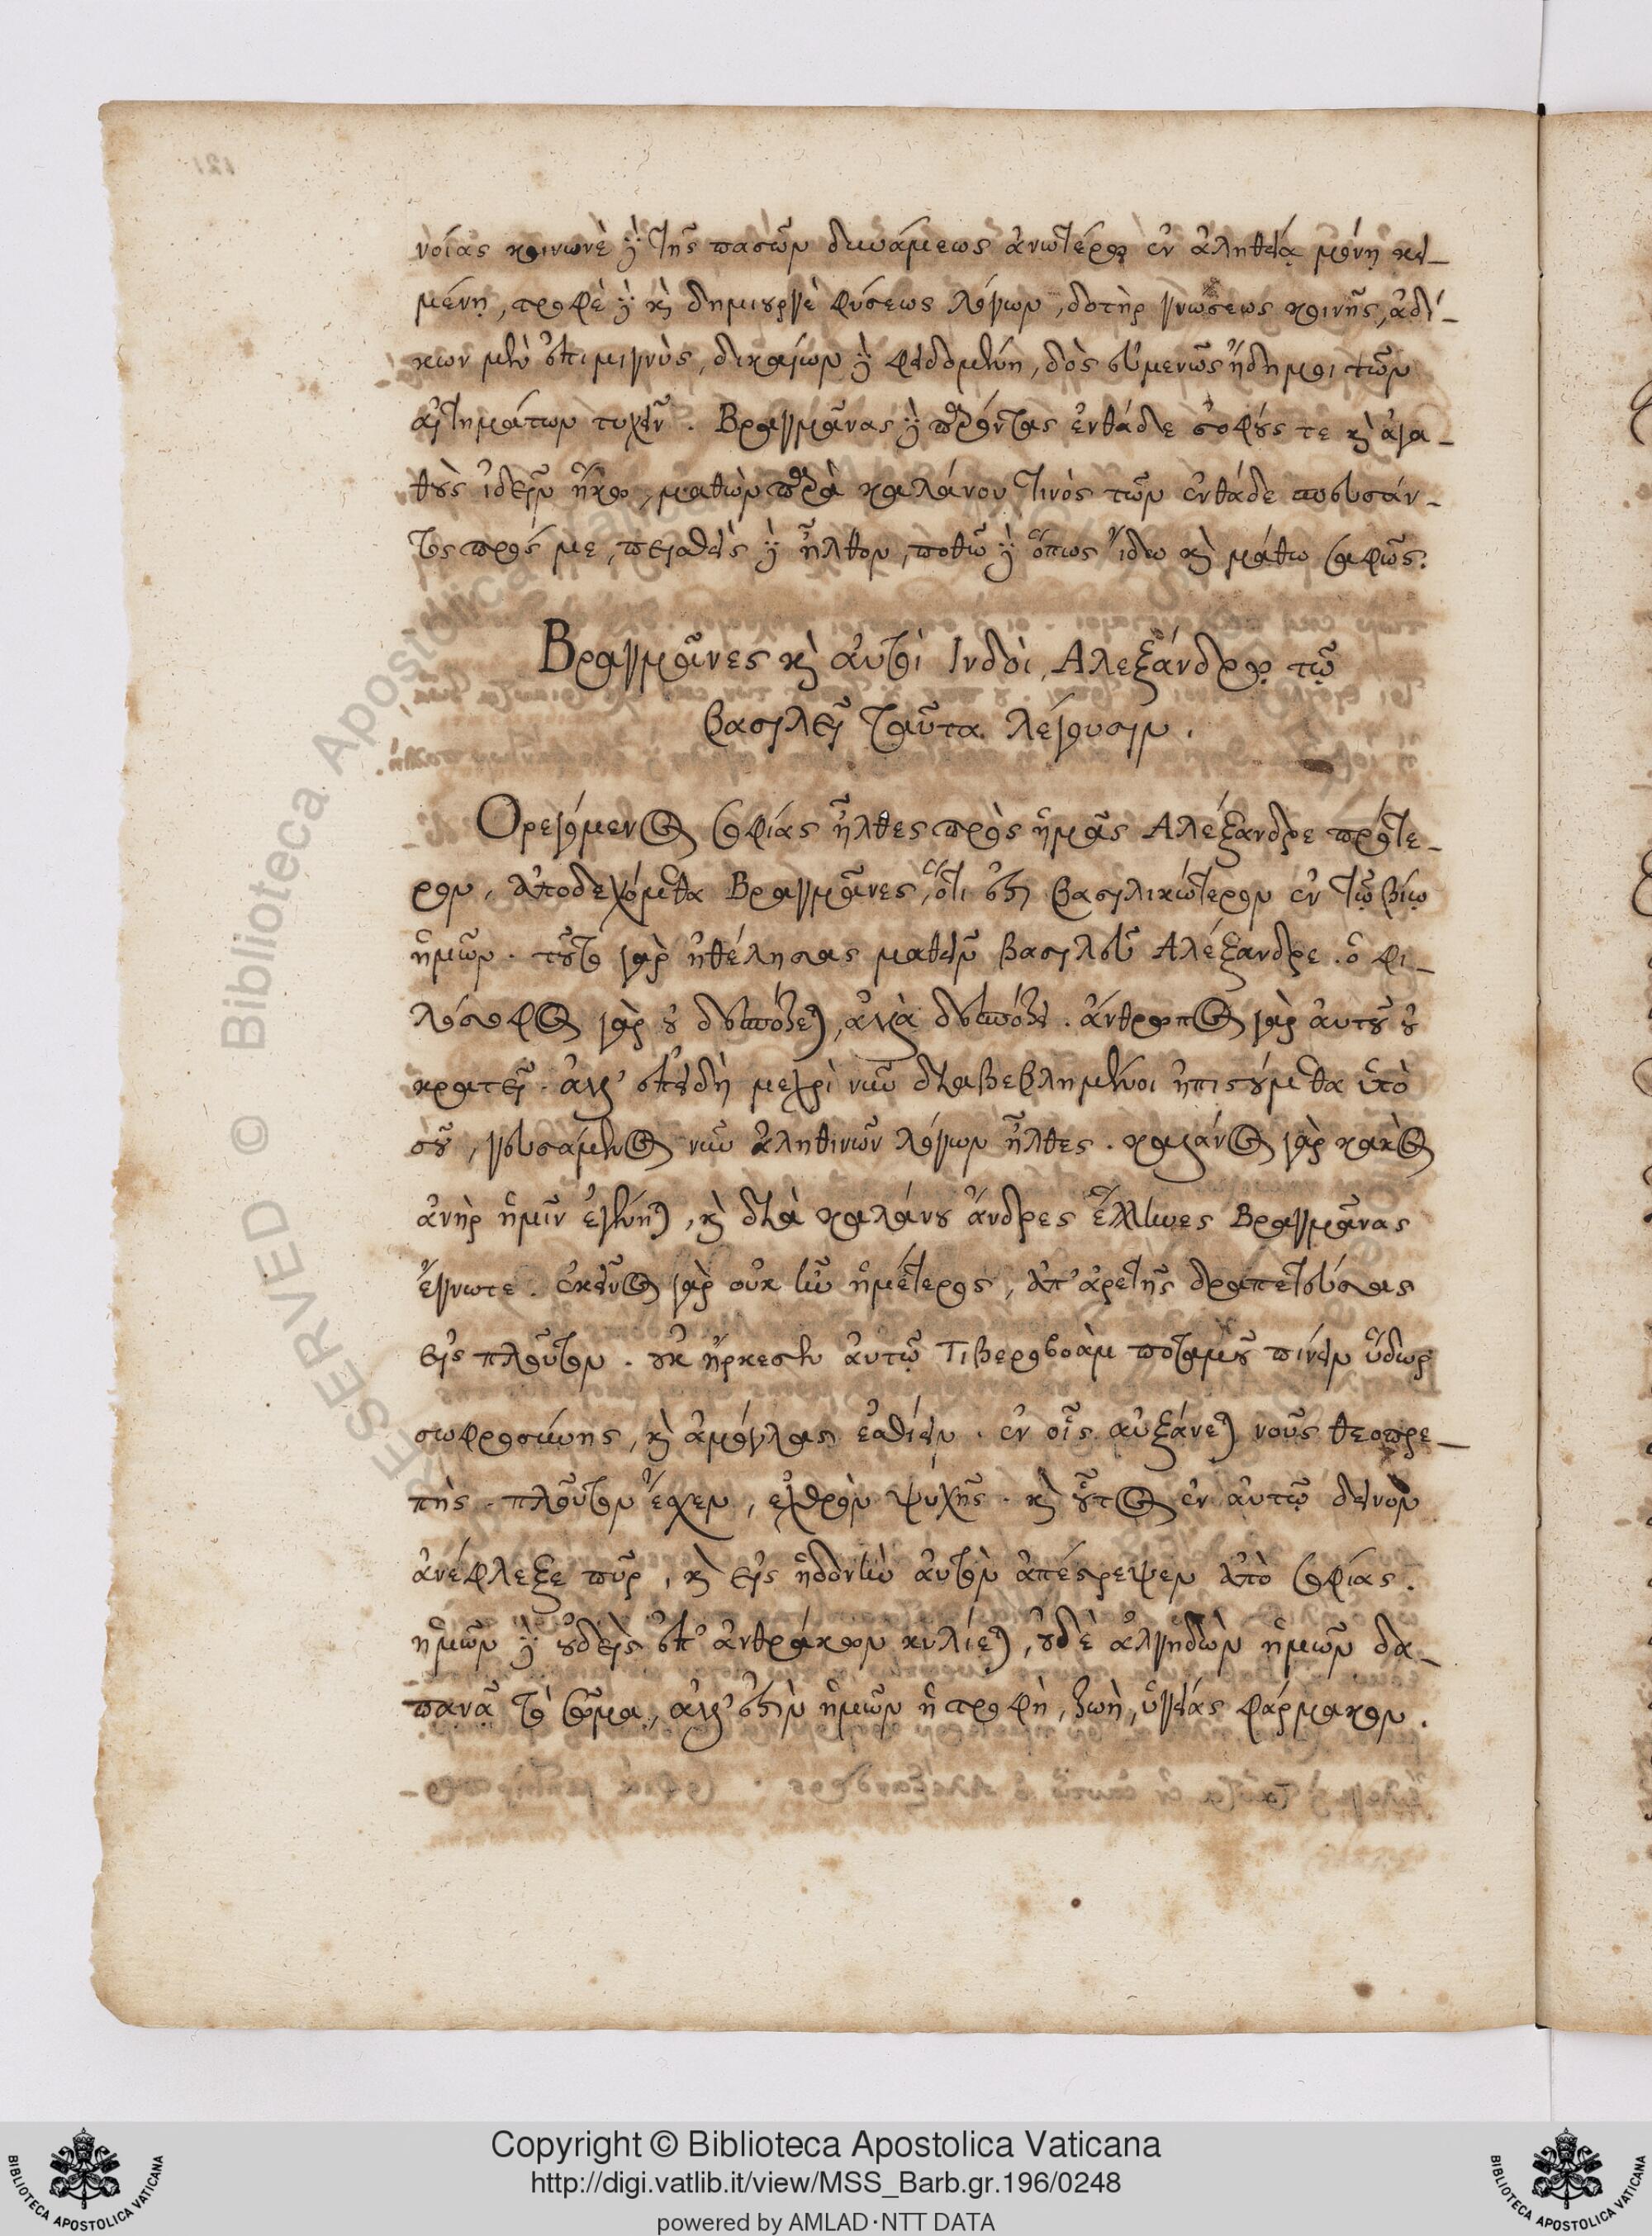 νοίας κοινωνὲ δὲ τῆς πασῶν δυνάμεως ἀνωτέρῳ ἐν ἀληθείᾳ μόνῃ κει-
μένῃ, τροφὲ δὲ καὶ δημιουργὲ φύσεως λόγων, δοτὴρ γνώσεως κοινῆς, ἀδί-
κων μὲν ἐπιμιγνὺς, δικαίων δὲ φειδομένη, δὸς εὐμενῶς ἤδη μοι τῶν
αἰτημάτων τυχεῖν. Βραγμᾶνας δὲ παρόντας ἐνθάδε σοφούς τε καὶ ἀγα-
θοὺς ἰδεῖν ἥκω, μαθὼν παρὰ καλάνου τινὸς τῶν ἐνθάδε πευσάν-
τος πρός με, πεισθεὶς δὲ ἦλθον, ποθῶ δὲ ὅπως ἴδω καὶ μάθω σαφῶς.
Βραγμᾶνες καὶ αὐτοὶ Ινδοὶ, Αλεξάνδρῳ τῷ
βασιλεῖ ταῦτα λέγουσιν.
Ορεγόμενος σοφίας ἦλθες πρὸς ἡμᾶς Αλέξανδρε πρότε-
ρον, ἀποδεχόμεθα Βραγμᾶνες, ὅτι ἐστὶ βασιλικώτερον ἐν τῷ βίῳ
ἡμῶν. τοῦτο γὰρ ἠθέλησας μαθεῖν βασιλεῦ Αλέξανδρε. ὁ φι-
λόσοφος γὰρ οὐ δεσπόζεται, ἀλλὰ δεσπόζει. ἄνθρωπος γὰρ αὐτοῦ οὐ
κρατεῖ. ἀλλ' ἐπειδὴ μεχρὶ νῦν διαβεβλημένοι ἠπιστούμεθα ὑπὸ
σοῦ, γευσάμενος νῦν ἀληθινῶν λόγων ἦλθες. καλάνος γὰρ κακὸς
ἀνὴρ ἡμῖν ἐγένετο, καὶ διὰ καλάνου ἄνδρες ἕλληνες Βραγμᾶνας
ἔγνωτε. ἐκεῖνος γὰρ οὐκ ἦν ἡμέτερος, ἀπ' ἀρετῆς δραπετεύσας
εἰς πλοῦτον. οὐκ ἤρκεσεν αὐτῷ Τιβεροβοὰμ ποταμοῦ πίνειν ὕδωρ
σωφροσύνης, καὶ ἀμόγλας ἐσθίειν. ἐν οἷς αὐξάνεται νοῦς θεοπρε-
πής. πλοῦτον ἔσχεν, ἐχθρὸν ψυχῆς. καὶ οὗτος ἐν αὐτῷ δεινὸν
ἀνέφλεξε πῦρ, καὶ εἰς ἡδονὴν αὐτὸν ἀπέστρεψεν ἀπὸ σοφίας.
ἡμῶν δὲ οὐδεὶς ἐπ' ἀνθράκων κυλίεται, οὐδὲ ἀλγηδὼν ἡμῶν δα-
πανᾷ τὸ σῶμα, ἀλλ' ἐστὶν ἡμῶν ἡ τροφὴ, ζωὴ, ὑγείας φάρμακον.
Copyright © Biblioteca Apostolica Vaticana
http://digi.vatlib.it/view/MSS_Barb.gr.196/0248
powered by AMLAD·NTT DATA